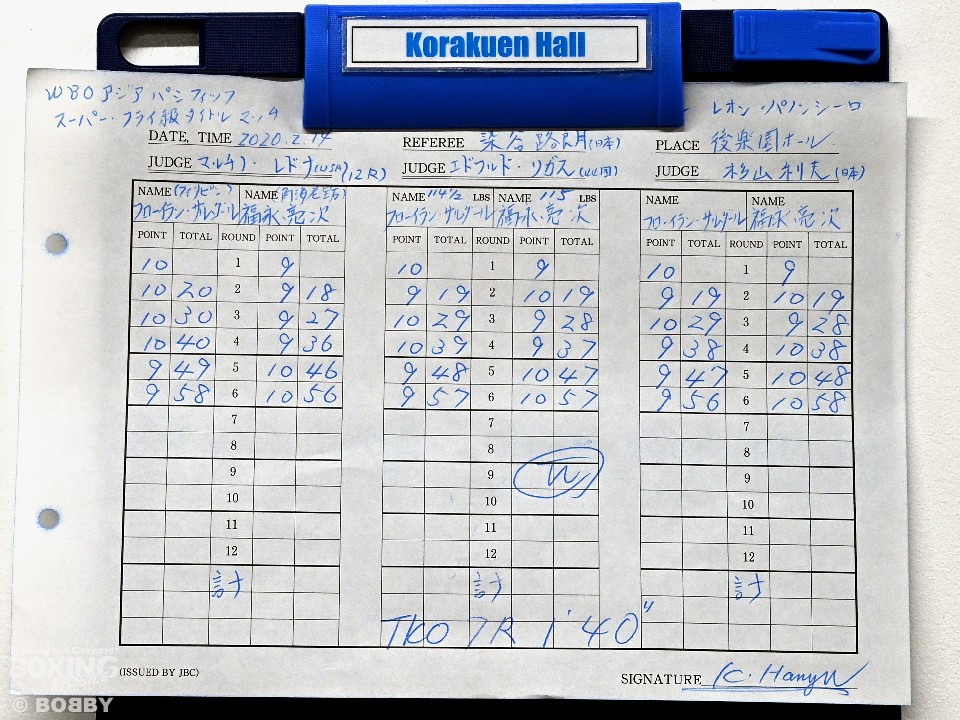 Korakuen Hall
WBO アジア パシフィック
スーパー・フライ級タイトル マッチ
レオン・パノンシーロ
DATE, TIME 2020.2.14 REFEREE 染谷路朗(日本) PLACE 後楽園ホール
JUDGE マルチナ・レドナ(USA)/12R) JUDGE エドワルド・リガス(比国) JUDGE 杉山利夫(日本)
NAME (フィリピン) NAME (角海老宝石) NAME 114½ LBS NAME 115 LBS NAME NAME
フローイラン・サルダール 福永亮次 フローイラン・サルダール 福永亮次 フローイラン・サルダール 福永亮次
POINT TOTAL ROUND POINT TOTAL POINT TOTAL ROUND POINT TOTAL POINT TOTAL ROUND POINT TOTAL
10 1 9 10 1 9 10 1 9
10 20 2 9 18 9 19 2 10 19 9 19 2 10 19
10 30 3 9 27 10 29 3 9 28 10 29 3 9 28
10 40 4 9 36 10 39 4 9 37 9 38 4 10 38
9 49 5 10 46 9 48 5 10 47 9 47 5 10 48
9 58 6 10 56 9 57 6 10 57 9 56 6 10 58
7 7 7
8 8 8
9 9 W 9
10 10 10
11 11 11
12 12 12
計 計 計
TKO 7R 1'40"
(ISSUED BY JBC) SIGNATURE K. Hany
BOXING
© BOBBY